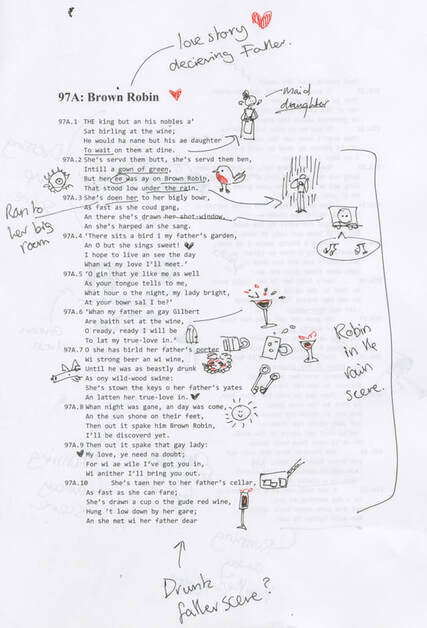 love story
decieving Father.
97A: Brown Robin
maid
daughter
97A.1 THE king but an his nobles a’
Sat birling at the wine;
He would ha nane but his ae daughter
To wait on them at dine.
97A.2 She’s servd them butt, she’s servd them ben,
Intill a gown of green,
But her ee was ay on Brown Robin,
That stood low under the rain.
97A.3 She’s doen her to her bigly bowr,
As fast as she coud gang,
An there she’s drawn her shot-window,
An she’s harped an she sang.
Ran to
her big
room
97A.4 ‘There sits a bird i my father’s garden,
An O but she sings sweet!
I hope to live an see the day
Whan wi my love I’ll meet.’
97A.5 ‘O gin that ye like me as well
As your tongue tells to me,
What hour o the night, my lady bright,
At your bowr sal I be?’
97A.6 ‘Whan my father an gay Gilbert
Are baith set at the wine,
O ready, ready I will be
To lat my true-love in.’
97A.7 O she has birld her father’s porter
Wi strong beer an wi wine,
Until he was as beastly drunk
As ony wild-wood swine:
She’s stown the keys o her father’s yates
An latten her true-love in.
Robin
in the
rain
scene.
97A.8 Whan night was gane, an day was come,
An the sun shone on their feet,
Then out it spake him Brown Robin,
I’ll be discoverd yet.
97A.9 Then out it spake that gay lady:
My love, ye need na doubt;
For wi ae wile I’ve got you in,
Wi anither I’ll bring you out.
97A.10 She’s taen her to her father’s cellar,
As fast as she can fare;
She’s drawn a cup o the gude red wine,
Hung ’t low down by her gare;
An she met wi her father dear
Drunk
father scene?